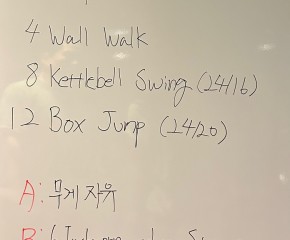 4 Wall Walk
8 Kettlebell Swing (24/16)
12 Box Jump (24/20)
A: 무게 자유
B: